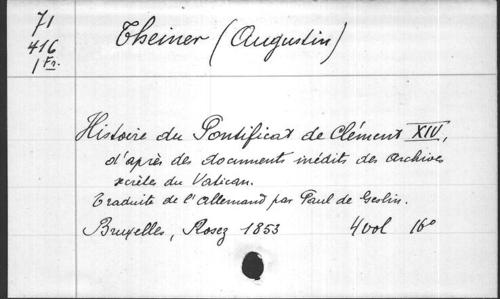 71
416
1 Fr.
Theiner (Augustin)
Histoire du Pontificat de Clément XIV,
d'après des documents inédits des archives
secrètes du Vatican.
Traduite de l'Allemand par Paul de Geslin.
Bruxelles, Rosez 1853 4 vol 16°